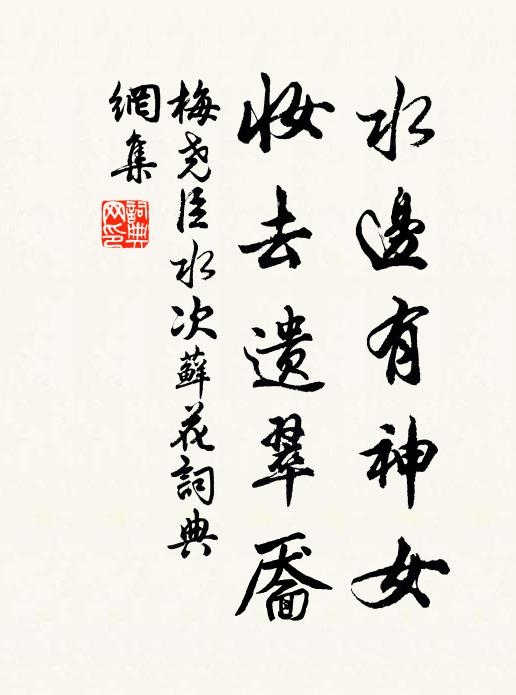 水邊有神女
妝去遺翠靨
梅堯臣水次蘚花詞典
網集
詞典網印